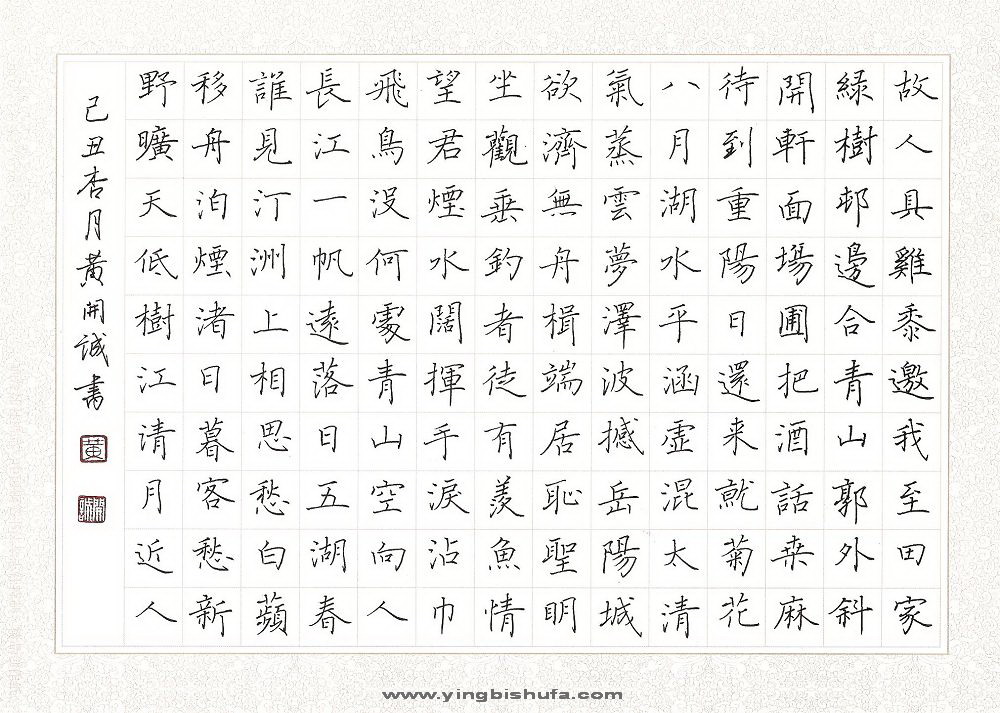 故人具雞黍邀我至田家
綠樹邨邊合青山郭外斜
開軒面場圃把酒話桒麻
待到重陽日還来就菊花
八月湖水平涵虛混太清
氣蒸雲夢澤波撼岳陽城
欲濟無舟楫端居恥聖明
坐觀垂釣者徒有羨魚情
望君煙水闊揮手淚沾巾
飛鳥没何處青山空向人
長江一帆遠落日五湖春
誰見汀洲上相思愁白蘋
移舟泊煙渚日暮客愁新
野曠天低樹江清月近人
己丑杏月黃開誠書
黃
www.yingbishufa.com